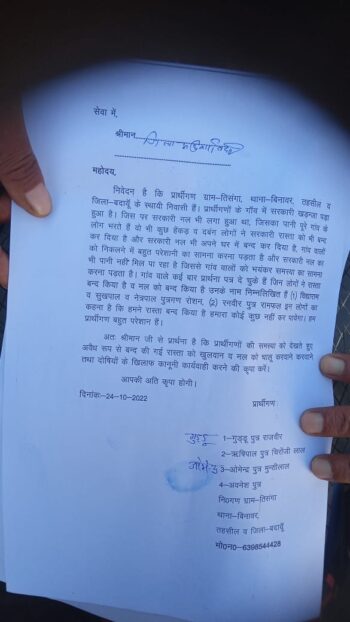 सेवा में,
श्रीमान
महोदय,
निवेदन है कि प्रार्थीगण ग्राम–तिसंगा, थाना–बिनावर, तहसील व
जिला–बदायूँ के स्थायी निवासी हैं। प्रार्थीगणों के गाँव में सरकारी खड़न्जा पड़ा
हुआ है। जिस पर सरकारी नल भी लगा हुआ था, जिसका पानी पूरे गांव के
लोग भरते हैं वो भी कुछ हेकड़ व दबंग लोगों ने सरकारी रास्ता को भी बन्द
कर दिया है और सरकारी नल भी अपने घर में बन्द कर दिया है, गांव वालों
को निकलने में बहुत परेशानी का सामना करना पड़ता है और सरकारी नल का
भी पानी नहीं मिल पा रहा है जिससे गांव वालों को भयंकर समस्या का सामना
करना पड़ता है। गांव वाले कई बार प्रार्थना पत्र दे चुके हैं जिन लोगों ने रास्ता
बन्द किया है व नल को बन्द किया है उनके नाम निम्नलिखित हैं (1) विद्याराम
व सुखपाल व नेत्रपाल पुत्रगण रोशन, (2) रनवीर पुत्र रामफल इन लोगों का
कहना है कि हमने रास्ता बन्द किया है हमारा कोई कुछ नहीं कर पायेगा। हम
प्रार्थीगण बहुत परेशान हैं।
अतः श्रीमान जी से प्रार्थना है कि प्रार्थीगणों की समस्या को देखते हुए
अवैध रूप से बन्द की गई रास्ता को खुलवान व नल को चालू करवाने करवाने
तथा दोषियों के खिलाफ कानूनी कार्यवाही करने की कृपा करें।
आपकी अति कृपा होगी।
दिनांकः–24-10-2022
प्रार्थीगण
गुड्डू 1–गुड्डू पुत्र राजवीर
2–ऋषिपाल पुत्र चिरोंजी लाल
3–ओमेन्द्र पुत्र मुन्शीलाल
4–अवनेश पुत्र
नि0गण ग्राम–तिसंगा
थाना–बिनावर,
तहसील व जिला–बदायूँ
मो0न0–6398544428